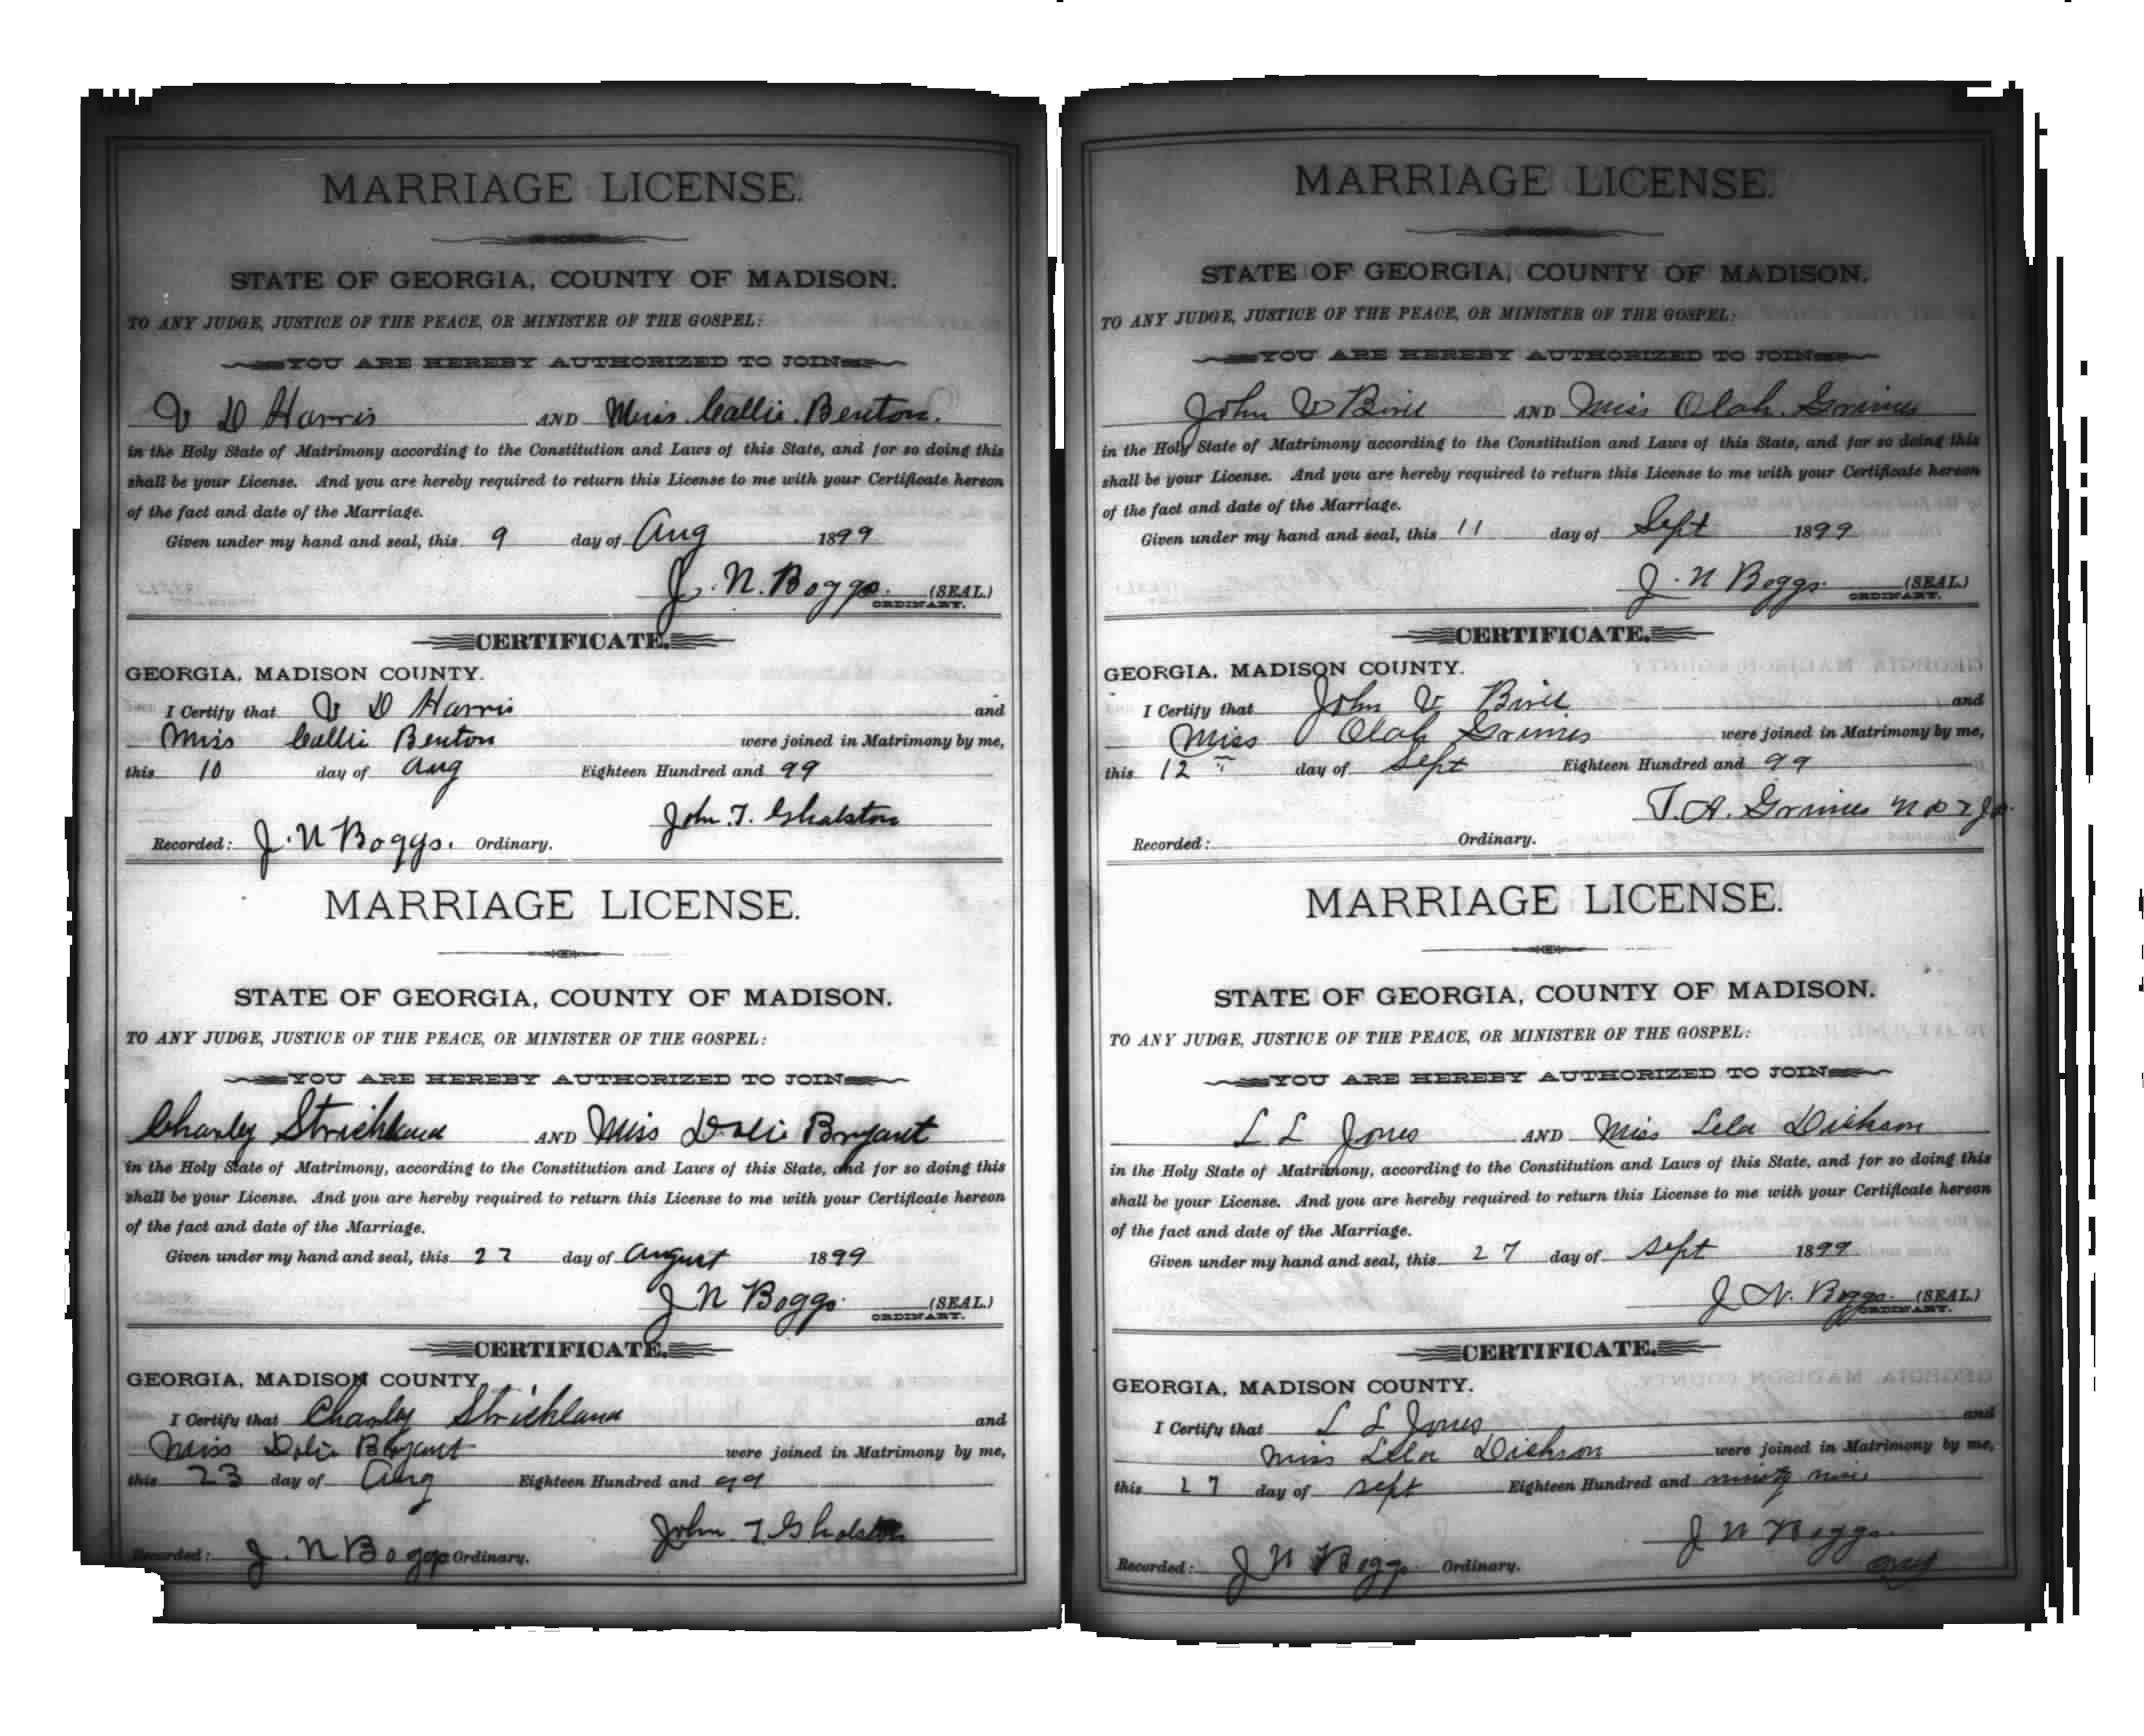 MARRIAGE LICENSE.
STATE OF GEORGIA, COUNTY OF MADISON.
TO ANY JUDGE, JUSTICE OF THE PEACE, OR MINISTER OF THE GOSPEL:
YOU ARE HEREBY AUTHORIZED TO JOIN
V D Harris AND Miss Callie Benton.
in the Holy State of Matrimony according to the Constitution and Laws of this State, and for so doing this
shall be your License. And you are hereby required to return this License to me with your Certificate hereon
of the fact and date of the Marriage.
Given under my hand and seal, this 9 day of Aug 1899
J. N. Boggs. (SEAL.)
ORDINARY.
CERTIFICATE.
GEORGIA, MADISON COUNTY.
I Certify that V D Harris and
Miss Callie Benton were joined in Matrimony by me,
this 10 day of Aug Eighteen Hundred and 99
John. T.
Recorded: J. N Boggs. Ordinary.
MARRIAGE LICENSE.
STATE OF GEORGIA, COUNTY OF MADISON.
TO ANY JUDGE, JUSTICE OF THE PEACE, OR MINISTER OF THE GOSPEL:
YOU ARE HEREBY AUTHORIZED TO JOIN
Charley Strickland AND Miss Dolie Bryant
in the Holy State of Matrimony, according to the Constitution and Laws of this State, and for so doing this
shall be your License. And you are hereby required to return this License to me with your Certificate hereon
of the fact and date of the Marriage.
Given under my hand and seal, this 22 day of August 1899
J N Boggs. (SEAL.)
ORDINARY.
CERTIFICATE.
GEORGIA, MADISON COUNTY.
I Certify that Charley Strickland and
Miss Dolie Bryant were joined in Matrimony by me,
this 23 day of Aug Eighteen Hundred and 99
John T
Recorded: J. N Boggs Ordinary.
MARRIAGE LICENSE.
STATE OF GEORGIA, COUNTY OF MADISON.
TO ANY JUDGE, JUSTICE OF THE PEACE, OR MINISTER OF THE GOSPEL:
YOU ARE HEREBY AUTHORIZED TO JOIN
John V AND Miss Olah. Grimes
in the Holy State of Matrimony according to the Constitution and Laws of this State, and for so doing this
shall be your License. And you are hereby required to return this License to me with your Certificate hereon
of the fact and date of the Marriage.
Given under my hand and seal, this 11 day of Sept 1899
J. N Boggs. (SEAL.)
ORDINARY.
CERTIFICATE.
GEORGIA, MADISON COUNTY.
I Certify that John V and
Miss Olah Grimes were joined in Matrimony by me,
this 12 day of Sept Eighteen Hundred and 99
T. A. Grimes
Recorded: Ordinary.
MARRIAGE LICENSE.
STATE OF GEORGIA, COUNTY OF MADISON.
TO ANY JUDGE, JUSTICE OF THE PEACE, OR MINISTER OF THE GOSPEL:
YOU ARE HEREBY AUTHORIZED TO JOIN
L L Jones AND Miss Lela Dickson
in the Holy State of Matrimony, according to the Constitution and Laws of this State, and for so doing this
shall be your License. And you are hereby required to return this License to me with your Certificate hereon
of the fact and date of the Marriage.
Given under my hand and seal, this 27 day of Sept 1899
J N. Boggs. (SEAL.)
ORDINARY.
CERTIFICATE.
GEORGIA, MADISON COUNTY.
I Certify that L L Jones and
Miss Lela Dickson were joined in Matrimony by me,
this 27 day of Sept Eighteen Hundred and ninety nine
J N Boggs
Ord
Recorded: J N Boggs. Ordinary.